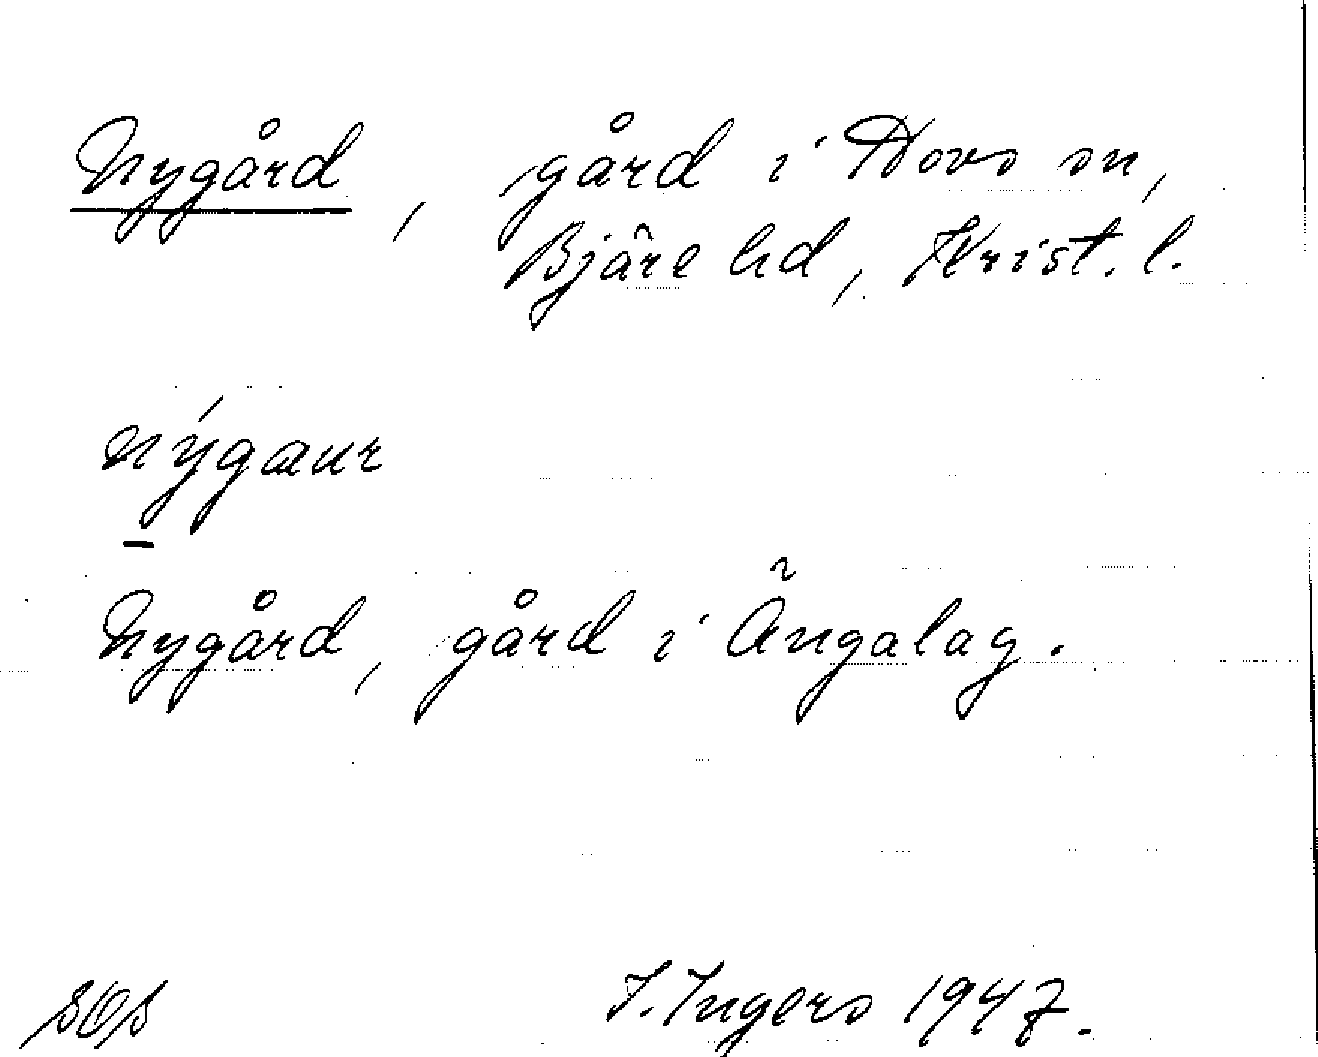 Nygård, gård i Hovs sn,
Bjäre hd, Krist. l.
nýgæur
Nygård, gård i Ängalag.
SOS I. Ingers 1947.